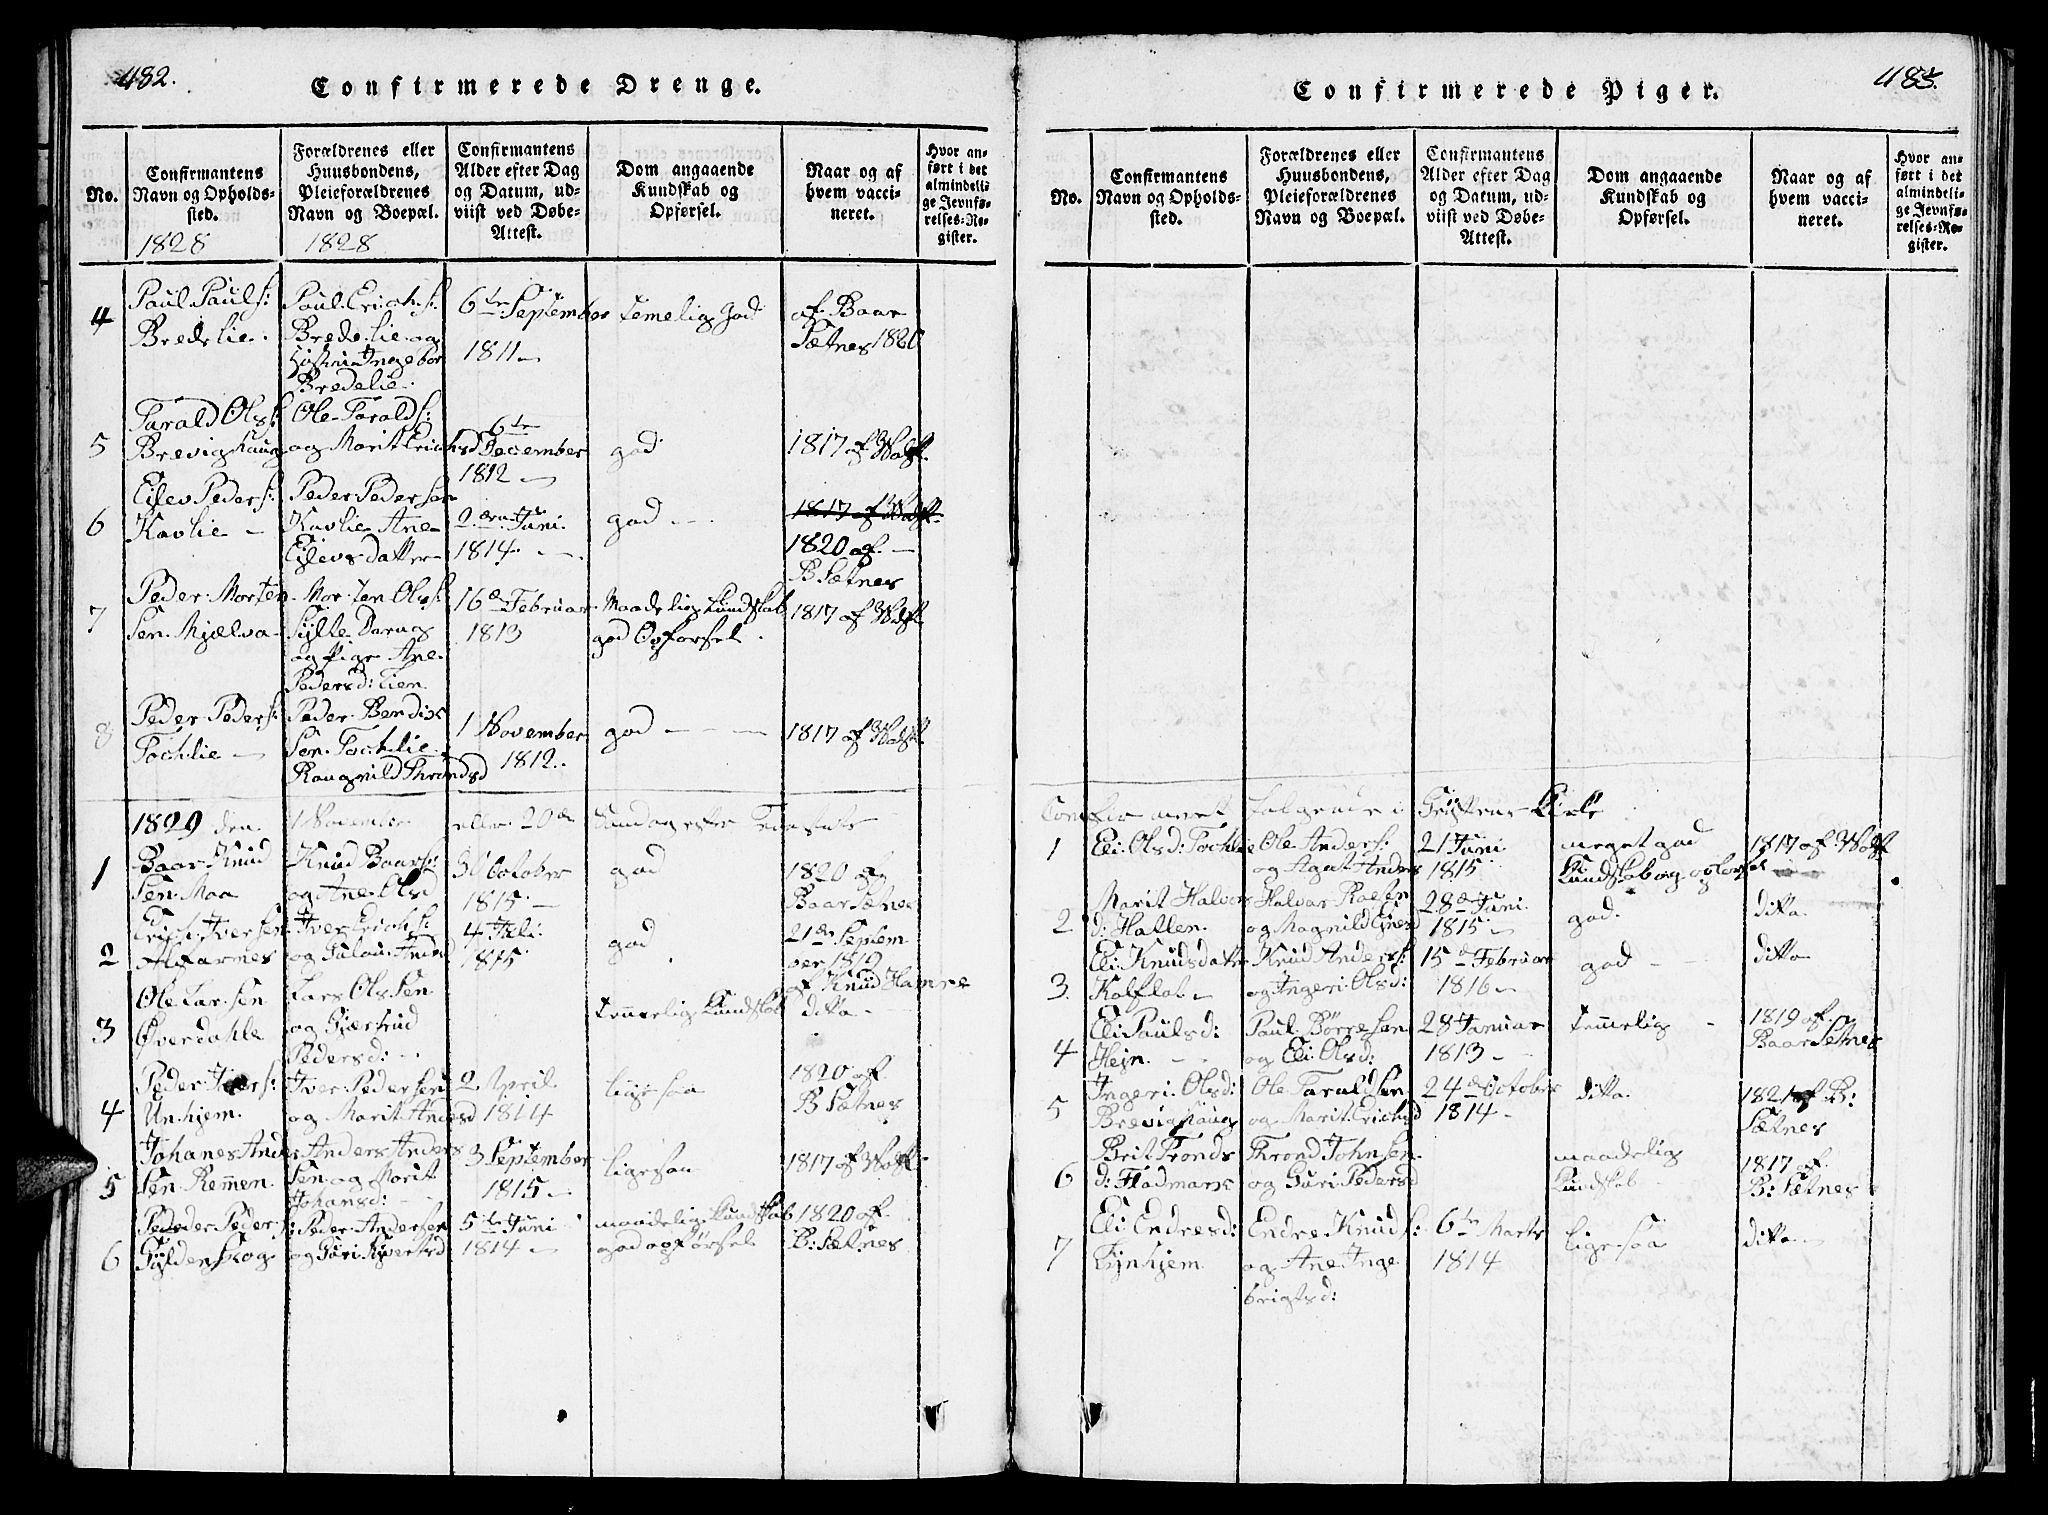 482.
Confirmerede Drenge.
No.
Confirmantens
Navn og Opholds-
sted.
1828
Forældrenes eller
Huusbondens,
Pleieforældrenes
Navn og Boepæl.
1828
Confirmantens
Alder efter Dag
og Datum, ud-
viist ved Døbe-
Attest.
Dom angaaende
Kundskab og
Opførsel.
Naar og af
hvem vacci-
neret.
Hvor an-
ført i det
almindeli-
ge Jevnfø-
relses-Re-
gister.
4
Paul Pauls:
Bredelie.
Paul Erichs:
Bredelie og
Ingebor
Bredelie.
6te September
1811
temelig God
af Baar
Sætnes 1820
5
Tarald Ols:
Brevighaug
Ole Taralds:
og Marit Erichsd
6te
December
1812
god
1817 af Wolf.
6
Eilev Peders:
Kavlie
Peder Pedersen
Kavlie Ane
Eilevsdatter
2den Juni
1814
god
1817 af Wolf.
1820 af
B Sætnes
7
Peder Morten
Sen. Mjælva
Morten Ols:
Sylte
og Pige Ane
Pedersd: Lien
16de Februar
1813
Maadelig Kundskab
god Opførsel.
1817 af Wolf.
8
Peder Peders:
Tochlie
Peder Bendix
Sen. Tochlie
Raugnild Throndsd
1 November
1812.
god
1817 af Wolf.
1829 den
1 November
eller 20de
Søndag efter Trinitatis
1
Baar Knud
Sen. Moa
Knud Baars:
og Ane Olsd
October
1815
god
1820 af
Baar Sætnes
2
Erich Iversen
Alfarnes
Iver Erichs:
og
4 Juli
1815
god
21de Septem
ber 1819
af Knud Hamre
3
Ole Larsen
Øverdahle
Lars Olssen
og Gjertrud
Pedersd:
temmelig Kundskab
ditto
4
Peder Ivers:
Unhjem.
Iver Pedersen
og Marit Andersd
2 April
1814
ligesaa
1820 af
B Sætnes
5
Johanes Anders
Sen Remmen
Anders Anders
Sen og Marit
Johansd:
3 September
1815
ligesaa
1817 af Wolf.
6
Pededer Peders:
Gyldenskog
Peder Andersen
og Guri
5te Juni
1814
maadelig Kundskab
god opførsel
1820 af
B: Sætnes
483.
Confirmerede Piger.
No.
Confirmantens
Navn og Opholds-
sted.
Forældrenes eller
Huusbondens,
Pleieforældrenes
Navn og Boepæl.
Confirmantens
Alder efter Dag
og Datum, ud-
viist ved Døbe-
Attest.
Dom angaaende
Kundskab og
Opførsel.
Naar og af
hvem vacci-
neret.
Hvor an-
ført i det
almindeli-
ge Jevnfø-
relses-Re-
gister.
Confirmeret følgende i Grøttens Kirke
1
Eli Olsd: Tochlie
Ole Anders:
og Agat Anders
21 Juni
1815
meget god
Kundskab og opførsel
1817 af Wolf
2
Marit Halvors
d: Hatlen
Halvar
og Magnild
28de Juni
1815
god.
ditto
3.
Eli Knudsdatter
Kalflot
Knud Anders:
og Ingeri Olsd:
15de Februar
1816
god
ditto
4
Eli Paulsd:
Hejn.
Paul Børresen
og Eli Olsd:
28 Januar
1813
temmelig
1819 af
Baar Setnes
5
Ingeri Olsd:
Brevighaug
Ole Taraldsen
og Marit Erichsd
24de October
1814
ditto
1821 af B:
Sætnes
6
Brit Tronds
d: Fladmark
Thrond Johnsen
og Guri Pedersd
maadelig
Kundskab
1817 af
B: Sætnes
7
Eli Endresd:
Lynhjem
Endre Knuds:
og Ane Inge
brigtsd:
6te Marts
1814
ligesaa
ditto